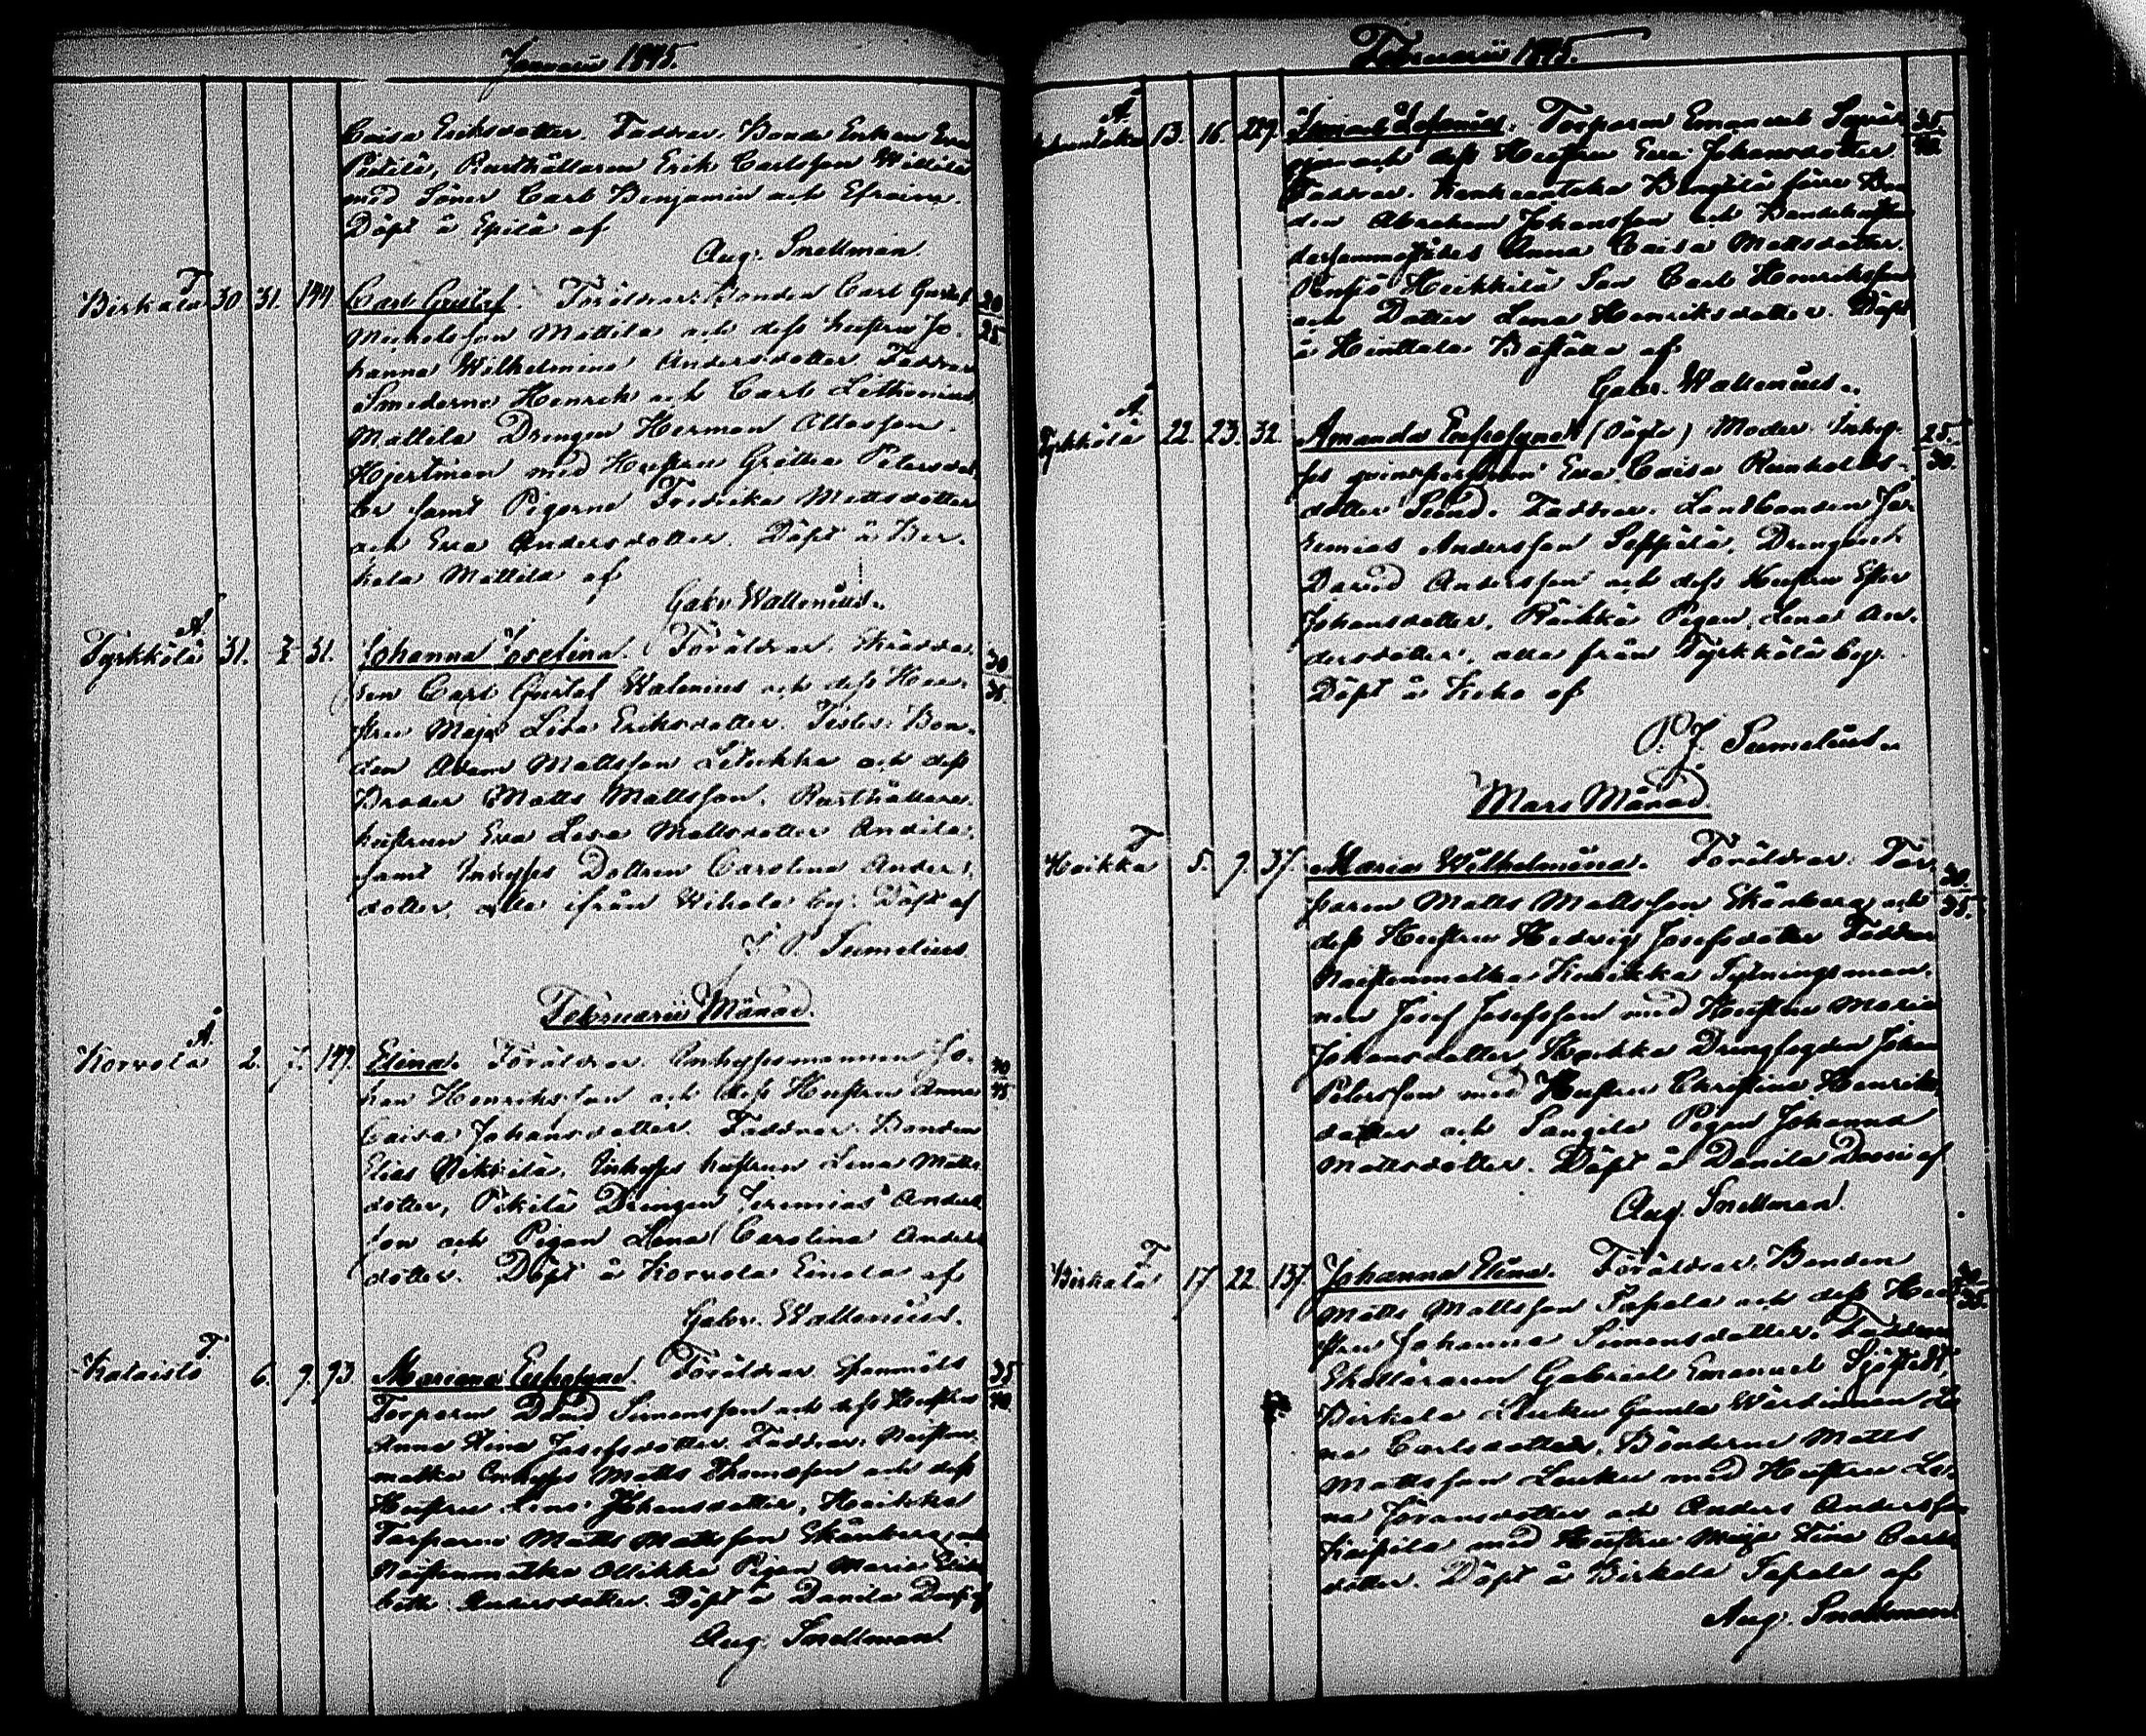 Januarii 1845.
Caisa Eriksdotter. Faddrar. Bonde Enkan Eva
Pitilä, Rusthållaren Erik Carlsson Willilä
med Söner Carl Benjamin och Efraim.
Döpt å Epilä af
Aug. Snellman.
T
Birkala 30 31. 144 Carl Gustaf. Föräldrar. Bonden Carl Gustaf 20
Michelsson Mattila och dess hustru Jo- 25
hanna Wilhelmina Andersdotter Faddrar
Smederne Henrik och Carl Lithenius
Mattila Drengen Herman Allesson
Hjertman med Hustru Gretha Petersdot
ter samt Pigorne Fredrika Mattsdotter
och Eva Andersdotter. Döpt å Bir-
kala Mattila af
Gabr. Wallenius.
A.
Tyrkkölä 31. 2 31. Johanna Josefina. Föräldrar. Skrädda- 30
ren Carl Gustaf Walenius och dess Hu- 35.
stru Maja Lisa Eriksdotter. Testes: Bon-
den Adam Mattsson Liukka och dess
Broder Matts Mattsson. Rusthållare
hustrun Eva Lisa Mattsdotter Andila
samt Inhyses Dottren Carolina Anders-
dotter, alla ifrån Wihola by. Döpt af
J. P. Sumelius
Februarii Månad.
A.
Korvola 2. 7. 149. Elina. Föräldrar. Inhysesmannen Jo- 40
han Henriksson och dess Hustru Anna 45
Caisa Johansdotter. Faddrar. Bonden
Elias Nikkilä. Inhyses hustrun Lena Matts
dotter, Pikilä Drengen Jeremias Anders
son och Pigan Lena Carolina Anders
dotter. Döpt å Korvola Einola af
Gabr. Wallenius.
T.
Kalaisto 6. 9. 93 Mariana Eufrosyna. Föräldrar. Spenmäts 35
Torparen David Simonsson och dess Hustru 40
Anna Stina Josefsdotter. Faddrar. Naisten-
matka Inhyses Matts Thomasson och dess
Hustru Lena Johansdotter, Haikka
Torparen Matts Mattsson Skånberg, och
Naistenmatka Ollikka Pigan Maria Elisa
beth Andersdotter. Döpt å Danila af
Aug. Snellman.
Februarii 1845.
A.
13. 16. 289. Torparen Emanuel 35.
och dess Hustru Eva Johansdotter 40.
Faddrar. Kankaantaka förre Bon
den Abraham Johansson och Bondehustrun
dersammastädes Anna Caisa Mattsdotter
Pinsiö Heikkilä Son Carl Henriksson
och Dotter Lena Henriksdotter. Döpt
å Hinttala Boställe af
Gabr. Wallenius.
A.
Tyrkkölä 22. 23. 32. Amanda Eufrosyna (Oägta) Moder. Inhy- 25.
ses Eva Caisa Reinholds- 30.
dotter Lund. Faddrar. Landbonden Je-
remias Andersson Seppälä, Drengen
David Andersson och dess Hustru Ester
Johansdotter, Räikkä Pigan, Lena An-
dersdotter, alla från Tyrkkölä by.
Döpt å Kyrka af
P. J. Sumelius.
Mars Månad.
T
Haikka 5. 9. 37. Maria Wilhelmina. Föräldrar. Tor- 30.
paren Matts Mattsson Skånberg och 35.
dess Hustru Hedvig Josefsdotter Faddrar
Naistenmatka Tytningsman-
nen Josef Josefsson med Hustru Maria
Johansdotter Haikka Drengsgden Johan
Petersson med Hustru Christina Henriks
dotter och Pigan Johanna
Mattsdotter. Döpt å Danila af
Aug. Snellman.
T
Birkala 17 22. 137. Johanna Elina. Föräldrar. Bonden 30
Matts Mattsson Tapala och dess Hu- 35.
stru Johanna Simonsdotter. Faddrar
Skolläraren Gabriel Emanuel Sjöstedt,
Birkala Leuku Gamla Wärdinnan Le
na Carlsdotter. Bönderne Matts
Mattsson Leuku med Hustru Le-
na Göransdotter och Anders Andersson
Knipila med Hustru Maja Stina Carls
dotter. Döpt å Birkala Tapala af
Aug. Snellman.